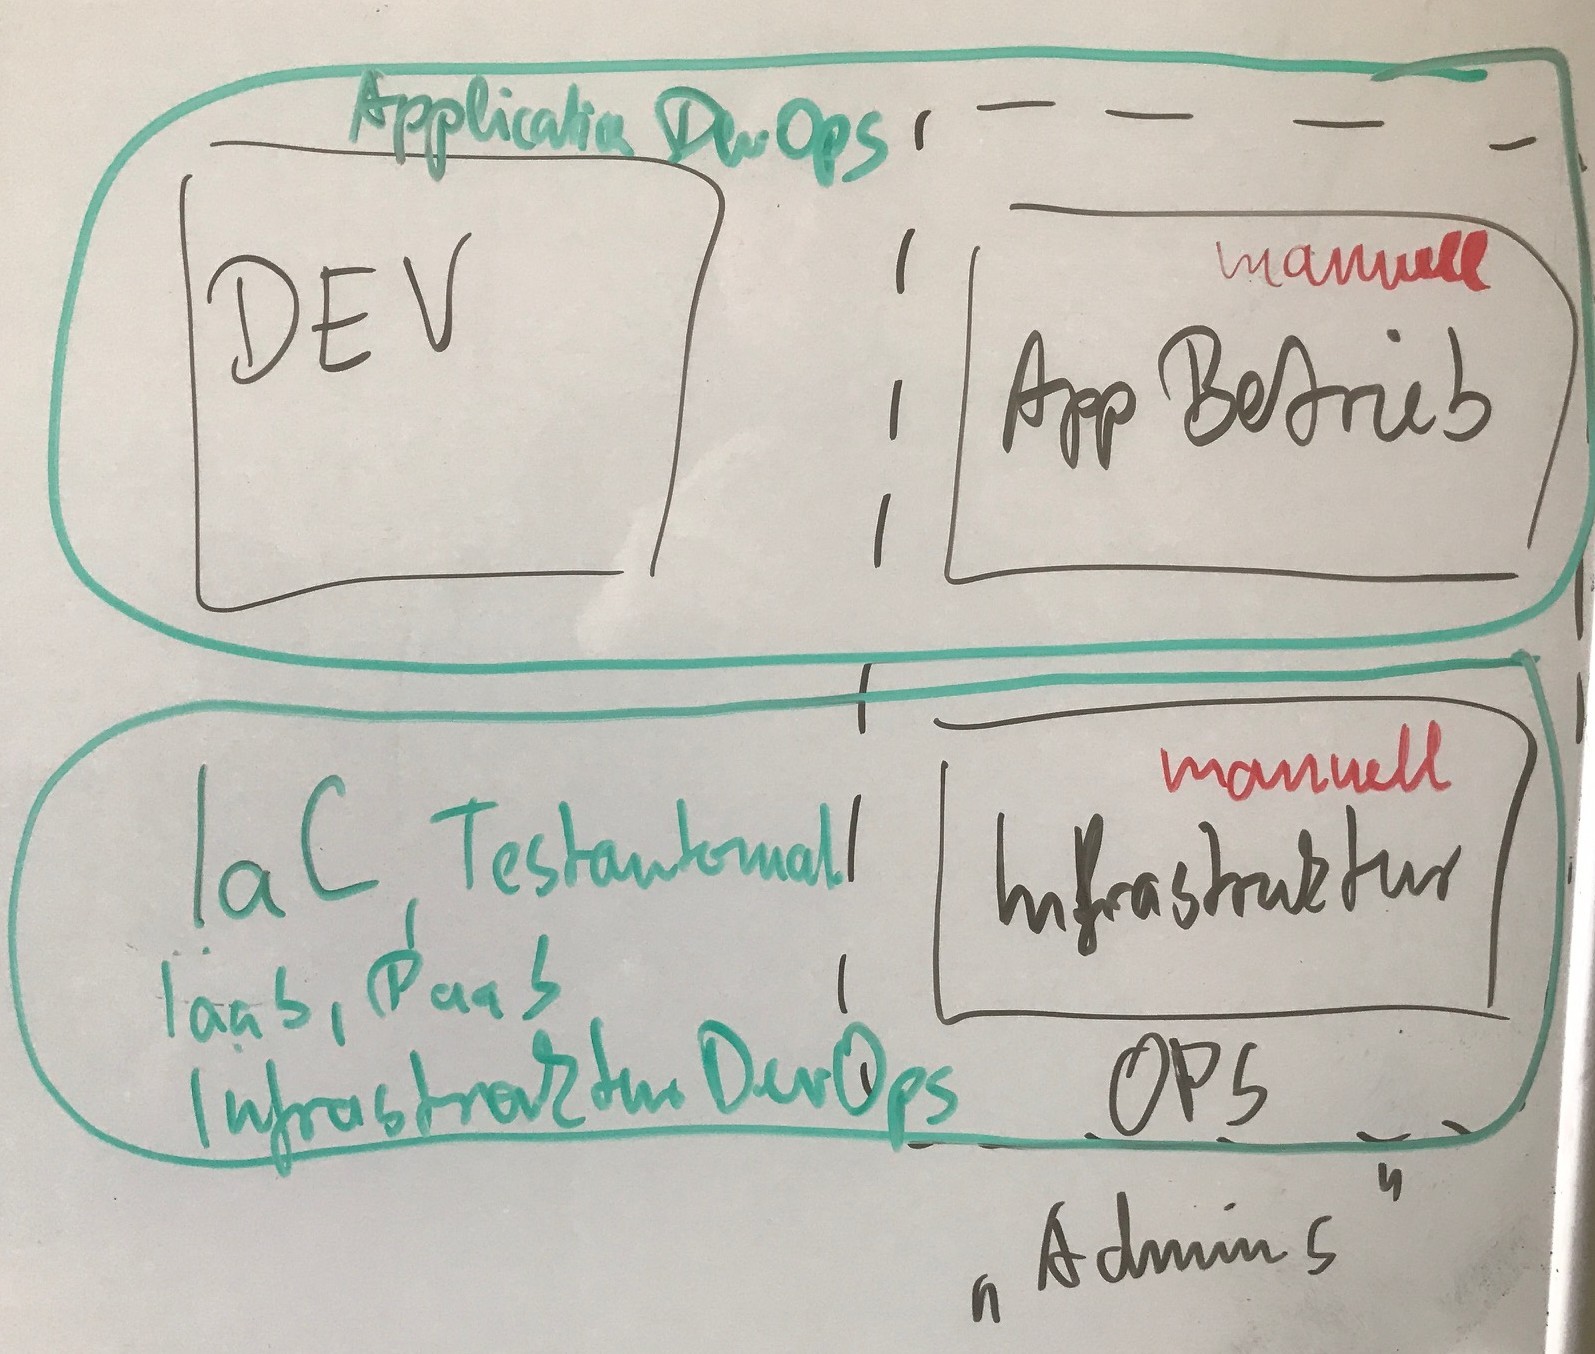 Application DevOps
DEV
manuell
App Betrieb
IaC, Testautomat.
IaaS, PaaS
Infrastruktur DevOps
manuell
Infrastruktur
OPS
„Admins"